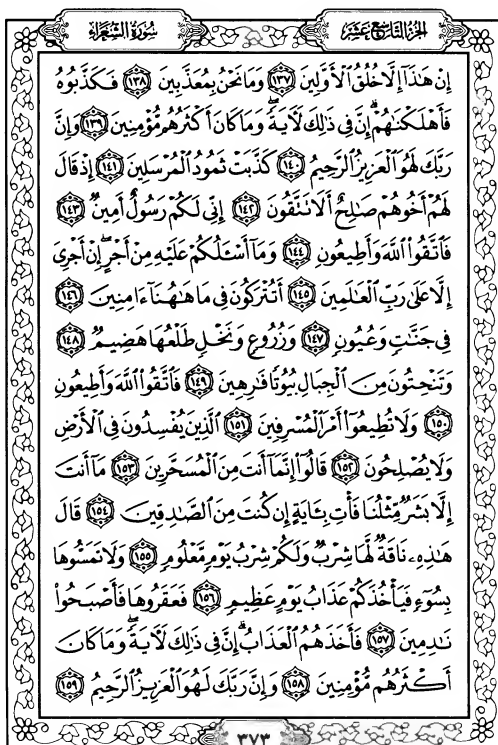 سُورَةُ الشُّعَرَاءِ الجُزْءُ التَّاسِعَ عَشَرَ
إِنْ هَٰذَآ إِلَّا خُلُقُ ٱلْأَوَّلِينَ ١٣٧ وَمَا نَحْنُ بِمُعَذَّبِينَ ١٣٨ فَكَذَّبُوهُ
فَأَهْلَكْنَٰهُمْ ۗ إِنَّ فِى ذَٰلِكَ لَءَايَةً ۖ وَمَا كَانَ أَكْثَرُهُم مُّؤْمِنِينَ ١٣٩ وَإِنَّ
رَبَّكَ لَهُوَ ٱلْعَزِيزُ ٱلرَّحِيمُ ١٤٠ كَذَّبَتْ ثَمُودُ ٱلْمُرْسَلِينَ ١٤١ إِذْ قَالَ
لَهُمْ أَخُوهُمْ صَٰلِحٌ أَلَا تَتَّقُونَ ١٤٢ إِنِّى لَكُمْ رَسُولٌ أَمِينٌ ١٤٣
فَٱتَّقُوا۟ ٱللَّهَ وَأَطِيعُونِ ١٤٤ وَمَآ أَسْـَٔلُكُمْ عَلَيْهِ مِنْ أَجْرٍ ۖ إِنْ أَجْرِىَ
إِلَّا عَلَىٰ رَبِّ ٱلْعَٰلَمِينَ ١٤٥ أَتُتْرَكُونَ فِى مَا هَٰهُنَآ ءَامِنِينَ ١٤٦
فِى جَنَّٰتٍ وَعُيُونٍ ١٤٧ وَزُرُوعٍ وَنَخْلٍ طَلْعُهَا هَضِيمٌ ١٤٨
وَتَنْحِتُونَ مِنَ ٱلْجِبَالِ بُيُوتًا فَٰرِهِينَ ١٤٩ فَٱتَّقُوا۟ ٱللَّهَ وَأَطِيعُونِ
١٥٠ وَلَا تُطِيعُوٓا۟ أَمْرَ ٱلْمُسْرِفِينَ ١٥١ ٱلَّذِينَ يُفْسِدُونَ فِى ٱلْأَرْضِ
وَلَا يُصْلِحُونَ ١٥٢ قَالُوٓا۟ إِنَّمَآ أَنتَ مِنَ ٱلْمُسَحَّرِينَ ١٥٣ مَآ أَنتَ
إِلَّا بَشَرٌ مِّثْلُنَا فَأْتِ بِـَٔايَةٍ إِن كُنتَ مِنَ ٱلصَّٰدِقِينَ ١٥٤ قَالَ
هَٰذِهِۦ نَاقَةٌ لَّهَا شِرْبٌ وَلَكُمْ شِرْبُ يَوْمٍ مَّعْلُومٍ ١٥٥ وَلَا تَمَسُّوهَا
بِسُوٓءٍ فَيَأْخُذَكُمْ عَذَابُ يَوْمٍ عَظِيمٍ ١٥٦ فَعَقَرُوهَا فَأَصْبَحُوا۟
نَٰدِمِينَ ١٥٧ فَأَخَذَهُمُ ٱلْعَذَابُ ۗ إِنَّ فِى ذَٰلِكَ لَءَايَةً ۖ وَمَا كَانَ
أَكْثَرُهُم مُّؤْمِنِينَ ١٥٨ وَإِنَّ رَبَّكَ لَهُوَ ٱلْعَزِيزُ ٱلرَّحِيمُ ١٥٩
٣٧٣